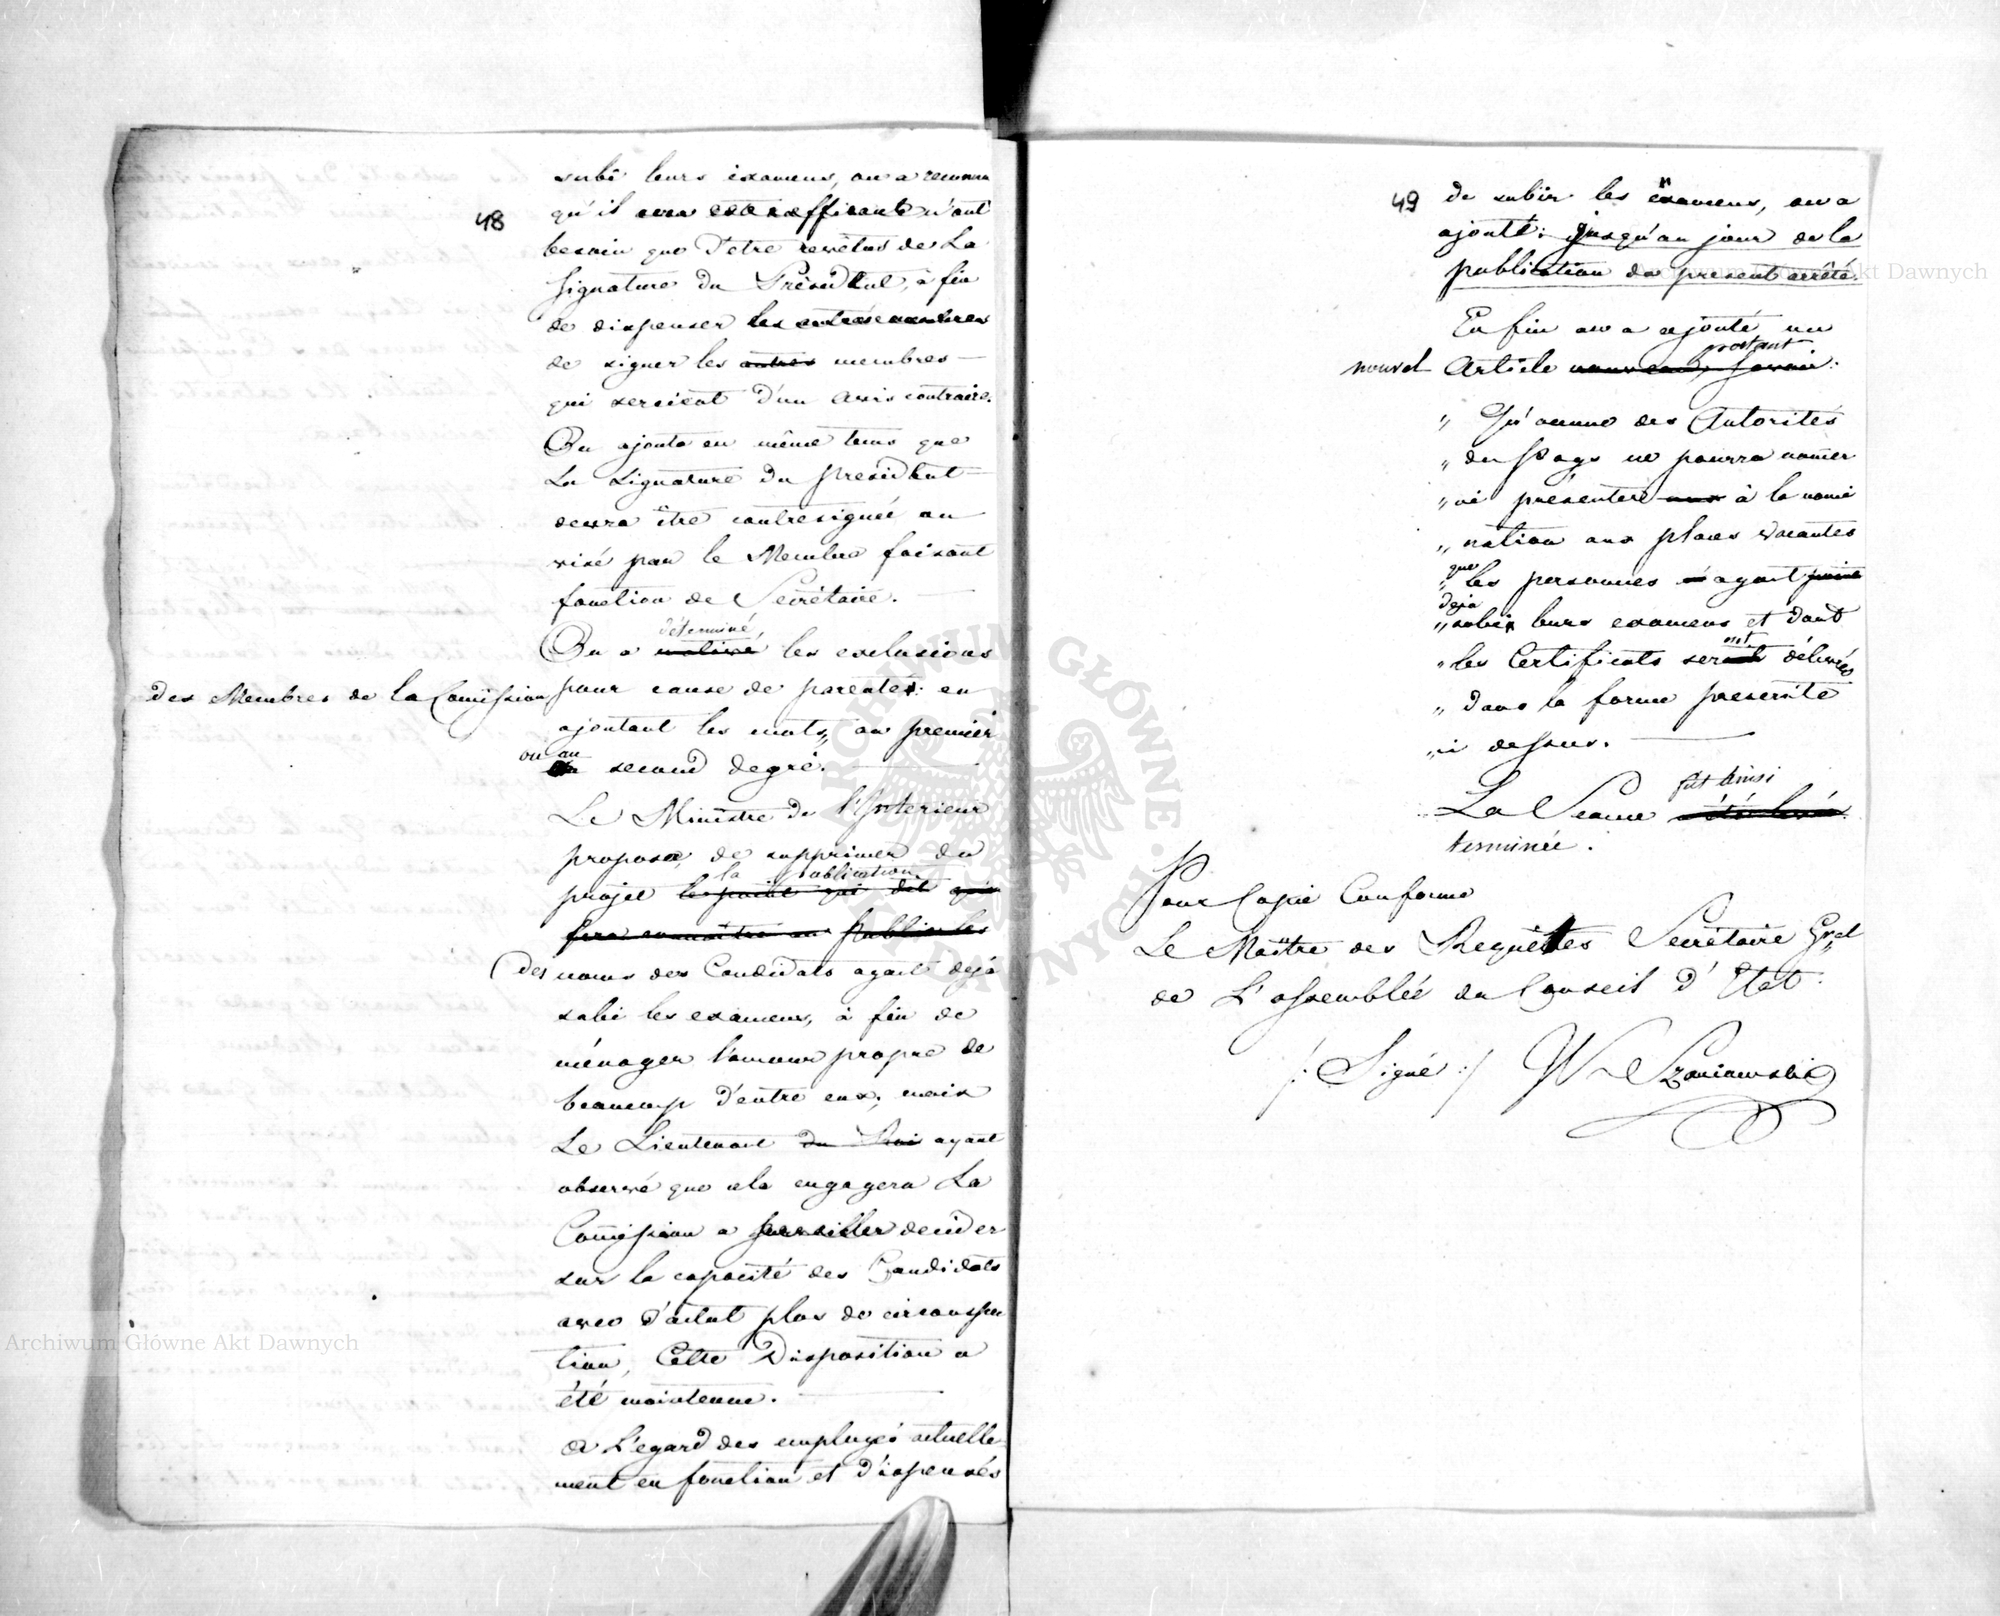 48
subi leurs éxamens, on a reconnu
qu'il n'ont
besoin que d'etre revêtus de La
Signature du Président, à fin
de dispenser
de signer les autres membres
qui seroient d'un avis contraire.
On ajouta en même tems que
La Signature du president
devra être contresignée ou
visé par le Membre faisant
fonction de Secrétaire.
déterminé,
On a motivé les exclusions
des Membres de la Comission pour cause de parenté: en
ajoutant les mots,, au premier
ou au
second degré.
Le Ministre de l'Interieur
proposa, de supprimer du
la publication
projet le point qui dit que
fera connaître au Public les
des noms des Candidats ayant déjà
subi les examens, à fin de
ménager l'amour propre de
beaucoup d'entre eux; mais
Le Lieutenant du Roi ayant
observé que cela engagera La
Comission a decider
sur la capacité des Candidats
avec d'autat plus de circonspec
tion, Cette Disposition a
été maintenue.
A L'egard des employés actuelle
ment en fonction et dispensés
49
de subir les éxamens, on a
ajouté: jusqu'au jour de la
publication du present arrêté.
En fin on a ajouté un
portant
nouvel Article nouveau, savoir:
" Qu'aucune des Autorités
" du Pays ne pourra nomer
" ni présenter à la nomi
" nation aux places vacantes
que
" les personnes ayant point
deja
" subi leurs examens et dont
ont
" les Certificats seront délivrés
" dans la forme prescrite
" ci dessus.
fut ainsi
La Séance a été levée
terminée.
Pour Copie Conforme
Le Maître des Requêtes Secrétaire Gral
de L'assemblée du Conseil d'Etat.
/: Signé :/ W Szaniawski
Archiwum Główne Akt Dawnych
Archiwum Główne Akt Dawnych
ARCHIWUM GŁÓWNE AKT DAWNYCH